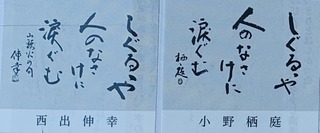 しぐるゝや
人のなさ
けに
涙ぐむ
小野栖庭
しぐるゝや
人のなさ
けに
涙ぐむ
山頭火の句
西出伸幸